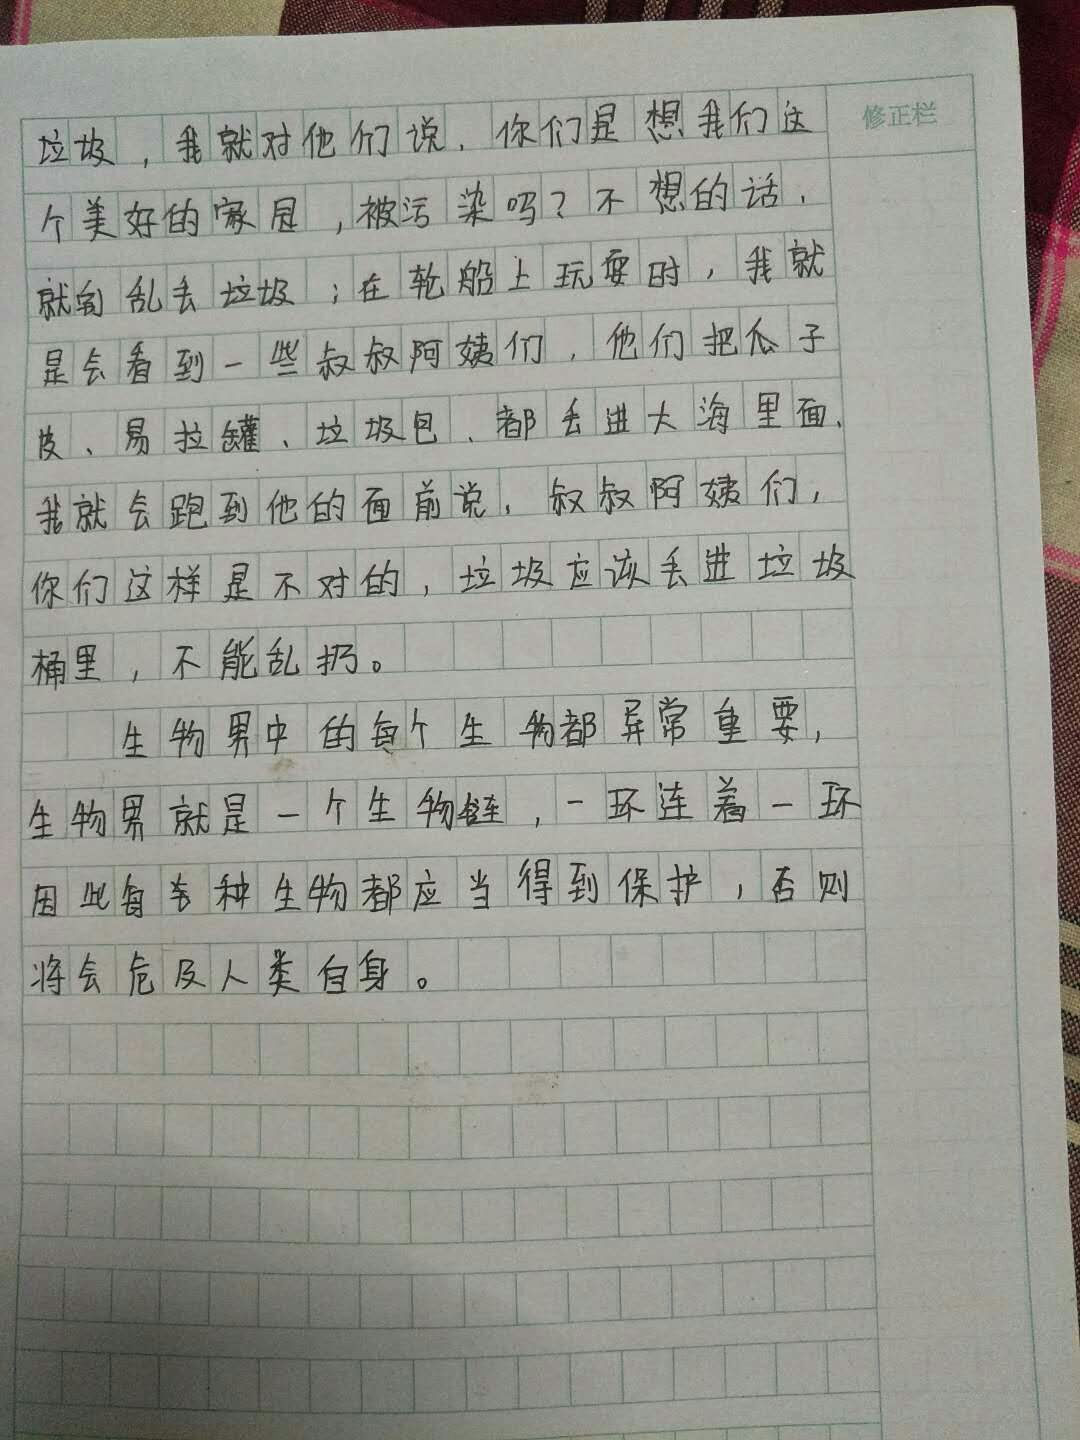 修正栏
垃圾，我就对他们说，你们是想我们这
个美好的家园，被污染吗？不想的话，
就别乱丢垃圾；在轮船上玩耍时，我就
是会看到一些叔叔阿姨们，他们把瓜子
皮、易拉罐、垃圾包、都丢进大海里面、
我就会跑到他的面前说，叔叔阿姨们，
你们这样是不对的，垃圾应该丢进垃圾
桶里，不能乱扔。
生物界中的每个生物都异常重要，
生物界就是一个生物链，一环连着一环
因此每种生物都应当得到保护，否则
将会危及人类自身。